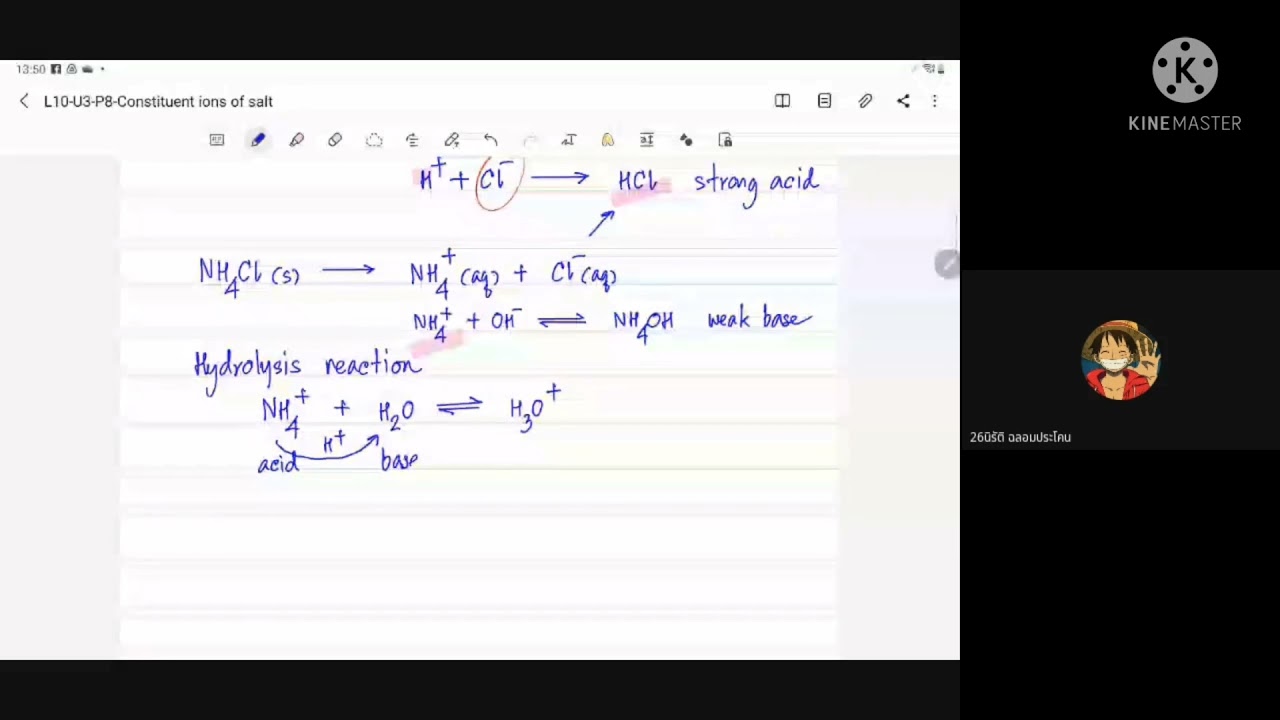 13:50
L10-U3-P8-Constituent ions of salt
KINEMASTER
H⁺ + Cl⁻ → HCl strong acid
NH₄Cl (s) → NH₄⁺ (aq) + Cl⁻ (aq)
NH₄⁺ + OH⁻ ⇌ NH₄OH weak base
Hydrolysis reaction
NH₄⁺ + H₂O ⇌ H₃O⁺
H⁺
acid base
26นิรัติ ฉลอมประโคน